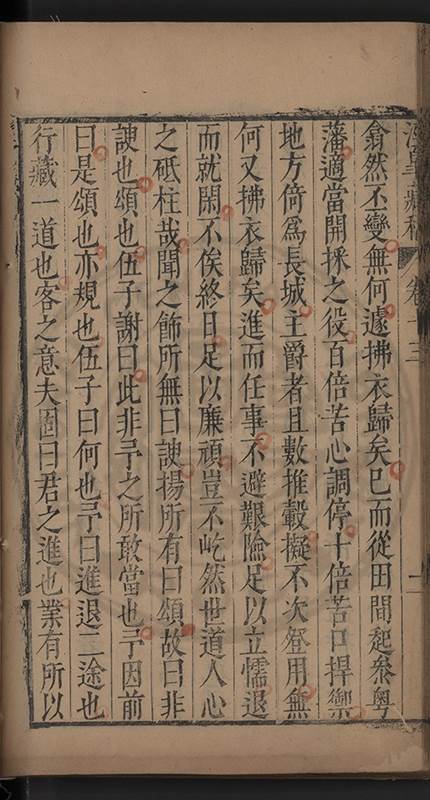 翕然丕變無何遽拂衣歸矣已而從田間起叅粤
藩適當開採之役百倍苦心調停十倍苦口捍禦
地方倚爲長城主爵者且數推轂擬不次登用無
何又拂衣歸矣進而任事不避艱險足以立懦退
而就閑不俟終日足以廉頑豈不屹然世道人心
之砥柱哉聞之飾所無曰諛揚所有曰頌故曰非
諛也頌也伍子謝曰此非予之所敢當也予因前
曰是頌也亦規也伍子曰何也予曰進退二途也
行藏一道也客之意夫固曰君之進也業有所以